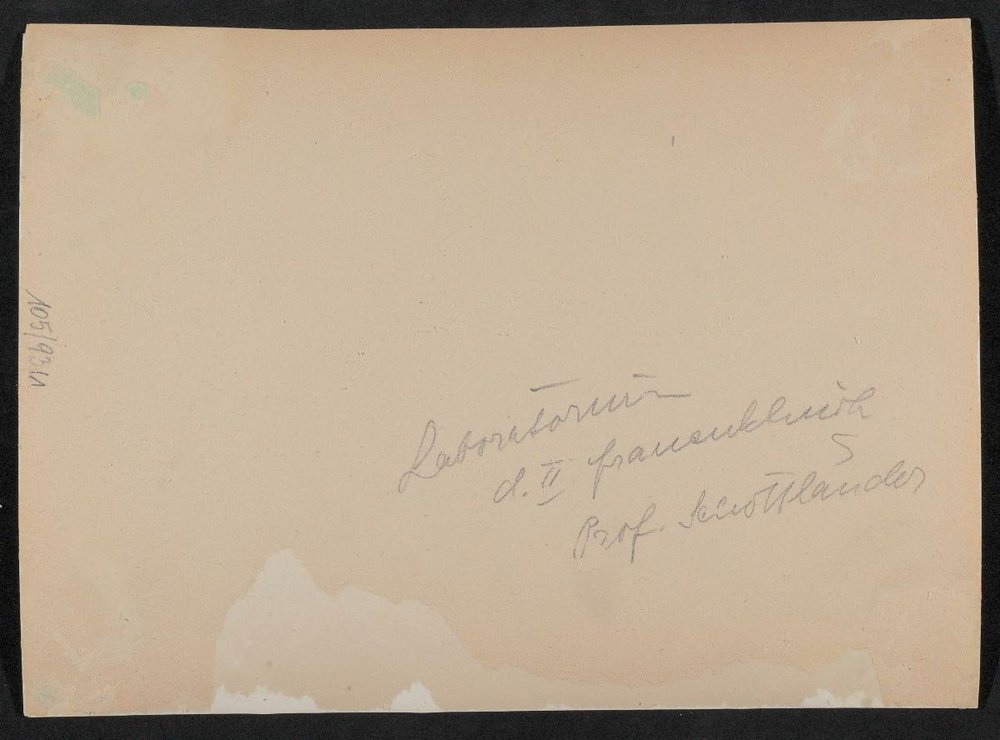 Laboratorium
d. II Frauenklinik
Prof. Schottländer